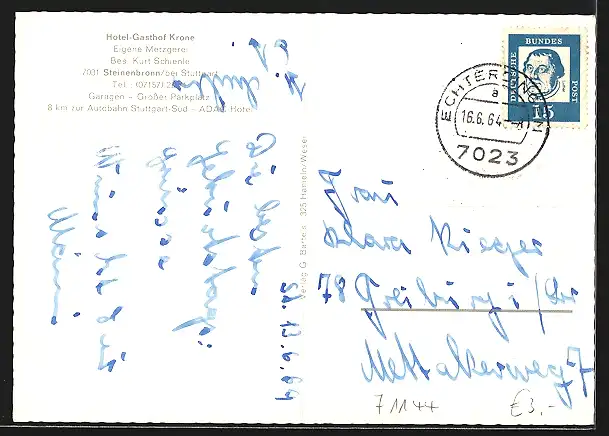 Hotel-Gasthof Krone
Eigene Metzgerei
Bes. Kurt Schienle
7031 Steinenbronn/bei Stuttgart
Tel.: (07157)
Garagen – Großer Parkplatz
8 km zur Autobahn Stuttgart-Süd – ADAC Hotel
DEUTSCHE BUNDES POST
15
ECHTERDINGEN
a
16.6.64
7023
Die besten
Geburtstags
grüsse
Verlag G. Bartels 325 Hameln/Weser
St. 15.6.64
Frau
Klara Rieger
78 Freiburg i/Br
Mettackerweg 7
71144
€3,-